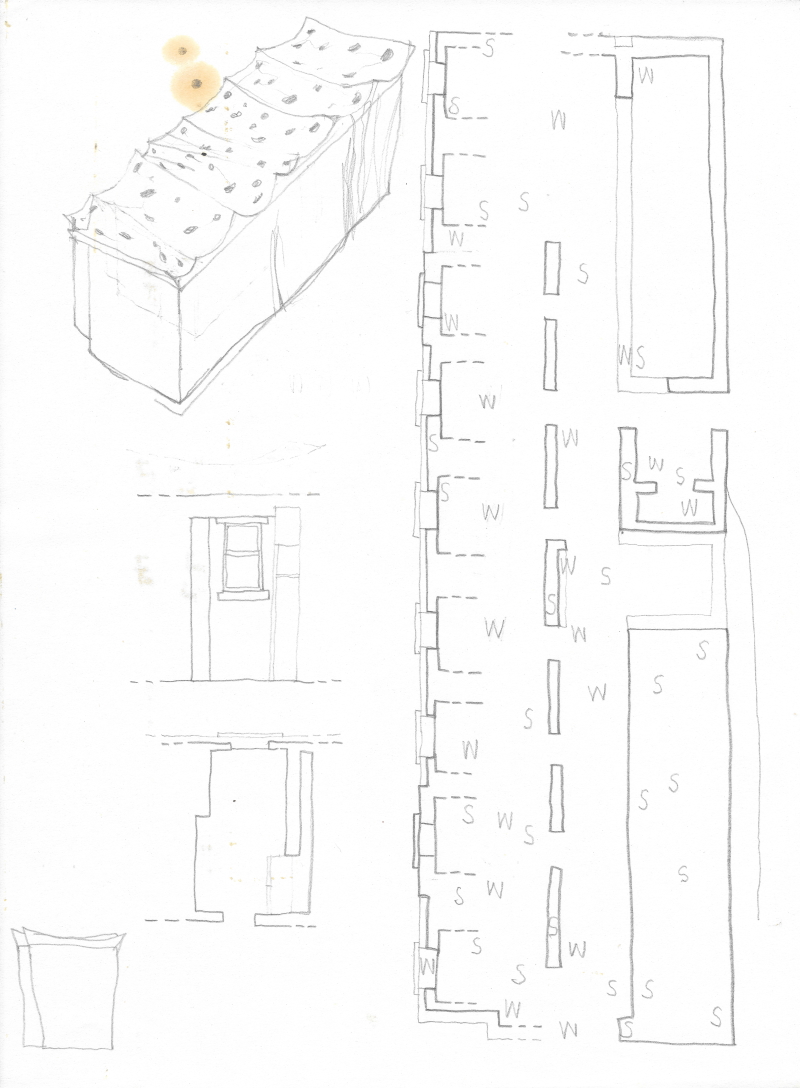 S
W
S
W
S S
W
S
W
W S
W
W
S
S W S
S
W W
W S
S
W W
S
S
W
S
W
S
S
S W
S
S
S W
S
S W
W
S
S S
W S
W S